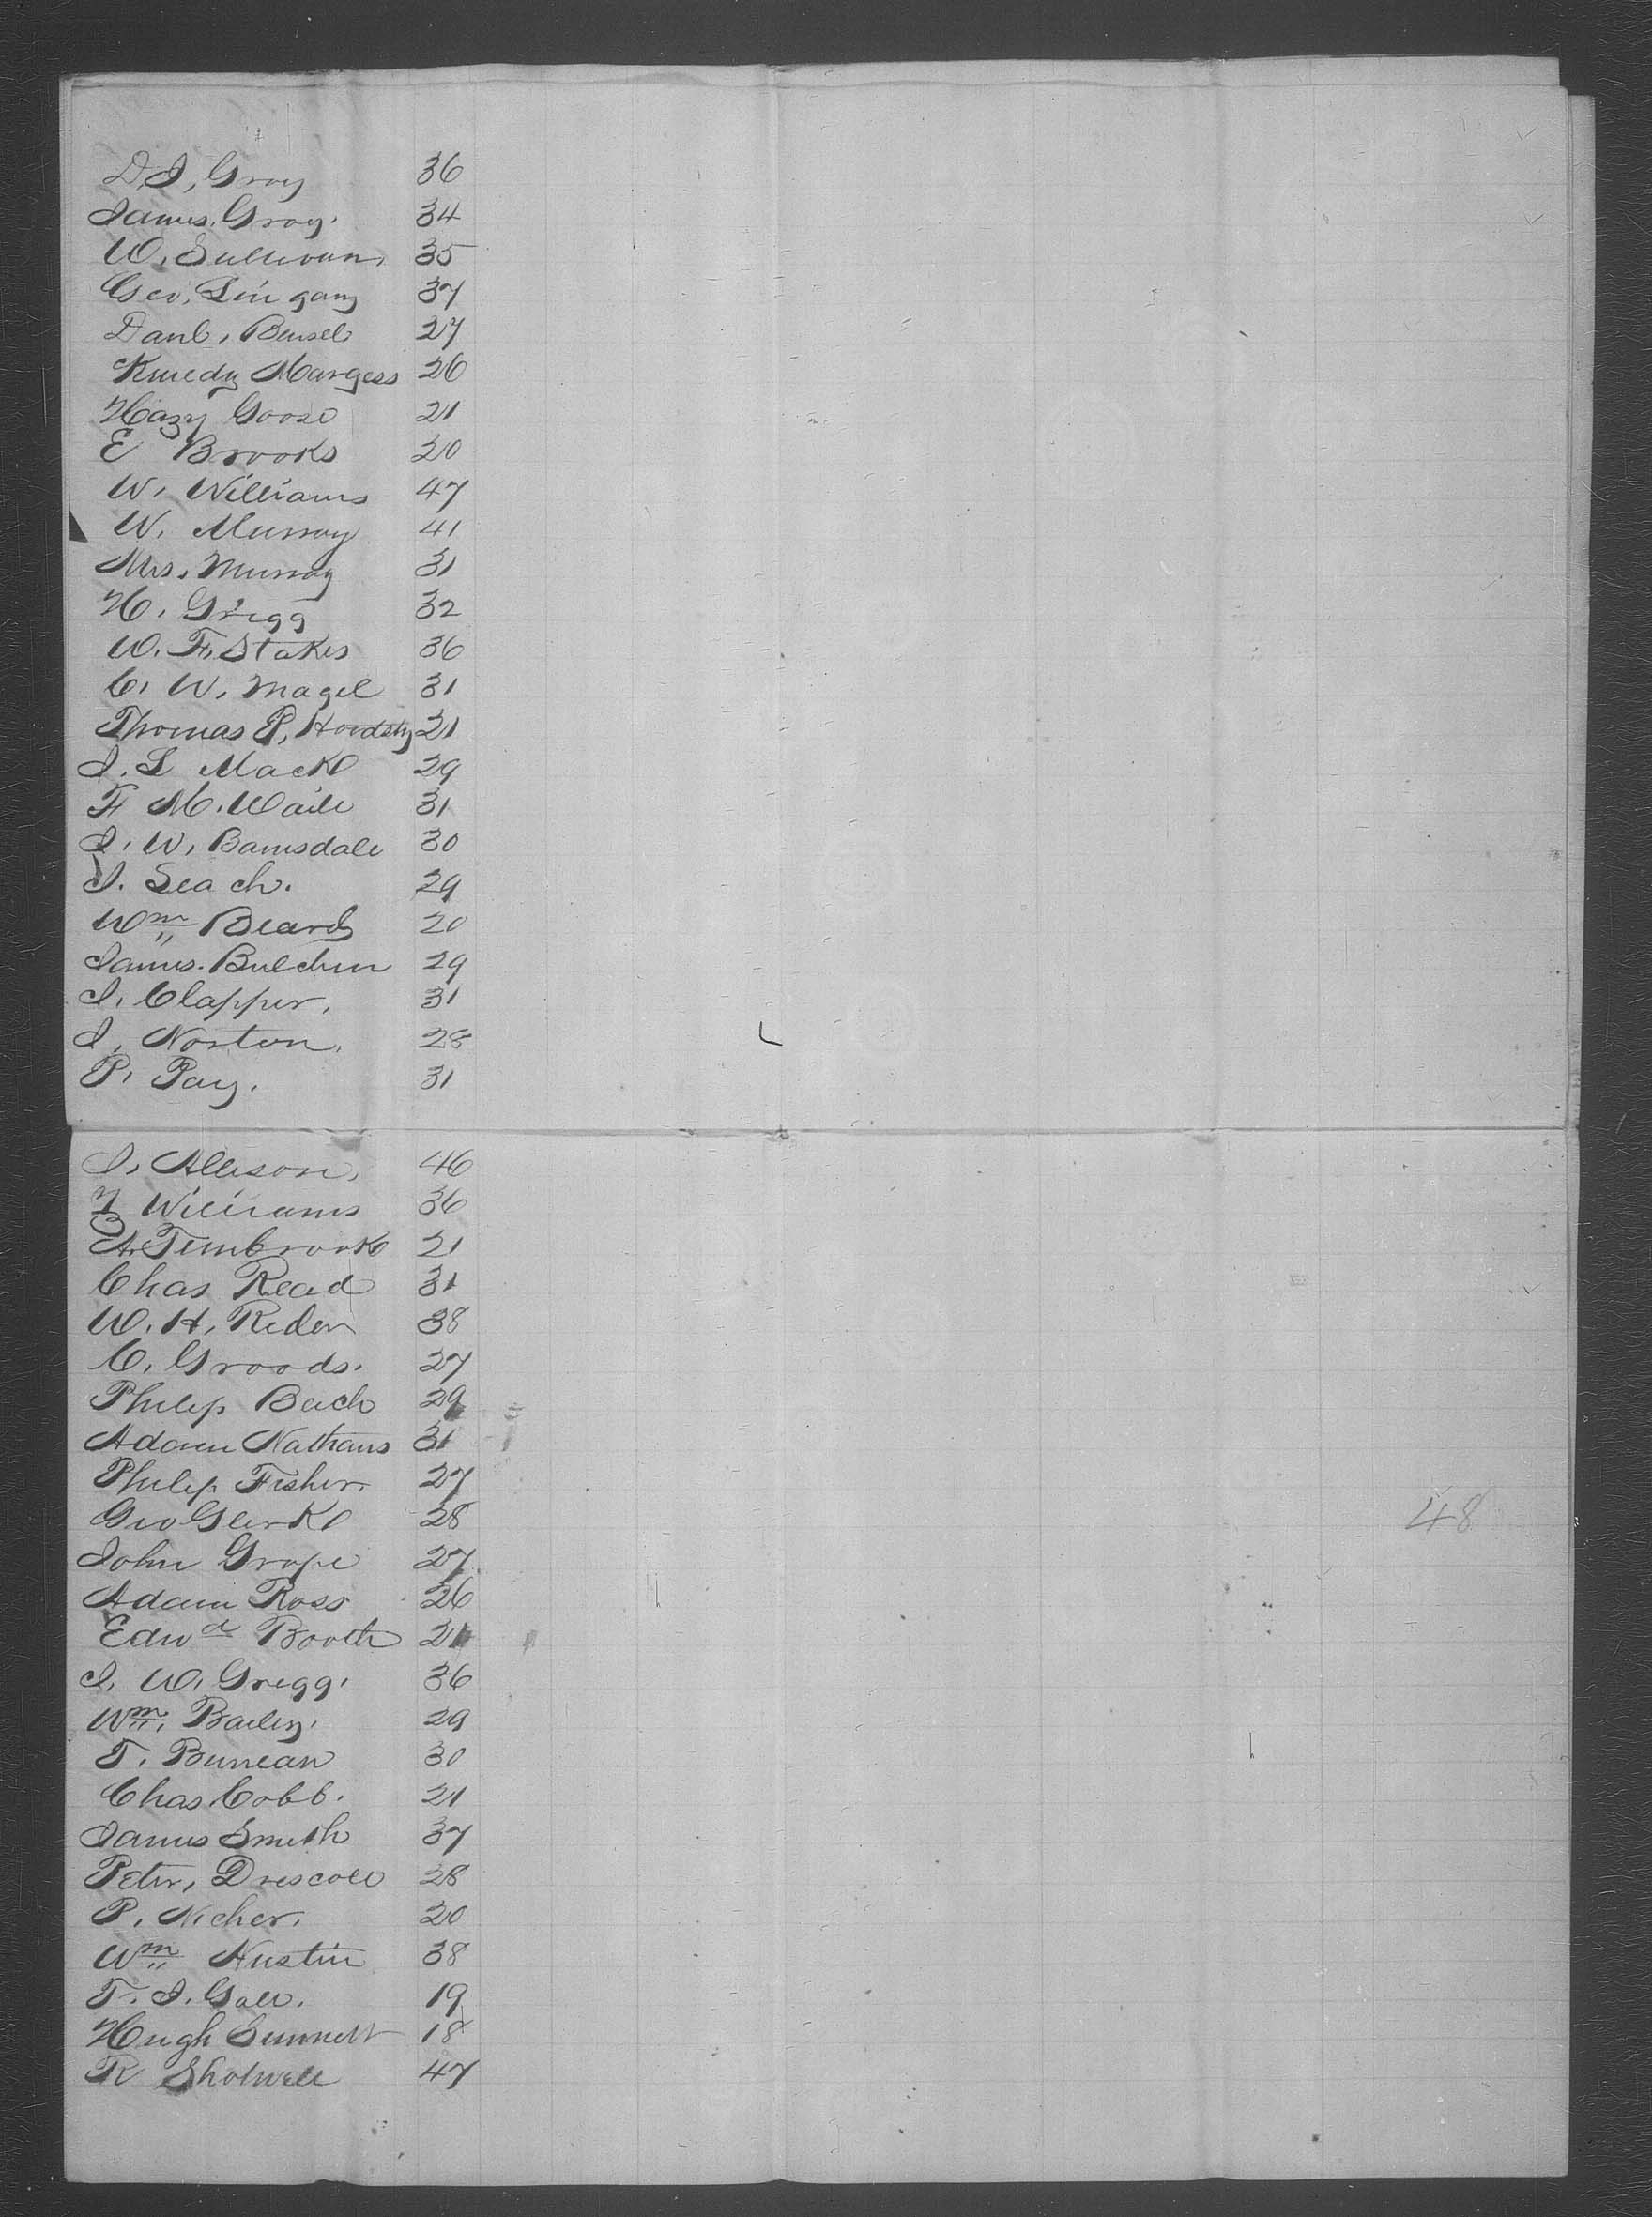 D. J. Gray 36
James. Gray. 34
W. Sullivan, 35
Geo. Lin gang 37
Danl. Bensel 27
Kenedy Margess 26
Hazy Goose 21
E Brooks 20
W. Williams 47
W. Murray 41
Mrs. Murray 31
H. Gregg 32
W. F. Stakes 36
C. W. Magel 31
Thomas P. 21
J. L Mack 29
F M. Waile 31
J. W. Barnsdale 30
J. Leach. 29
Wm Beard 20
James. 29
J. Clapper. 31
J. Norton. 28
P. Pay. 31
J. Allison. 46
Williams 36
A. Timbrook 21
Chas Read 31
W. H. Reder 38
C. Groods. 27
Philip Bach 29
Adam Nathans 31
Philip Fisher 27
Geo Glerk 28
48
John Grape 27
Adam Ross 26
Edwd Booth 21
J. W. Gregg. 36
Wm. Bailey. 29
T. Buncan 30
Chas. Cobb. 21
James Smith 37
Peter, Driscoll 28
P. Nicher. 20
Wm Hustin 38
T. J. Gale. 19
Hugh 18
R Sholwell 47